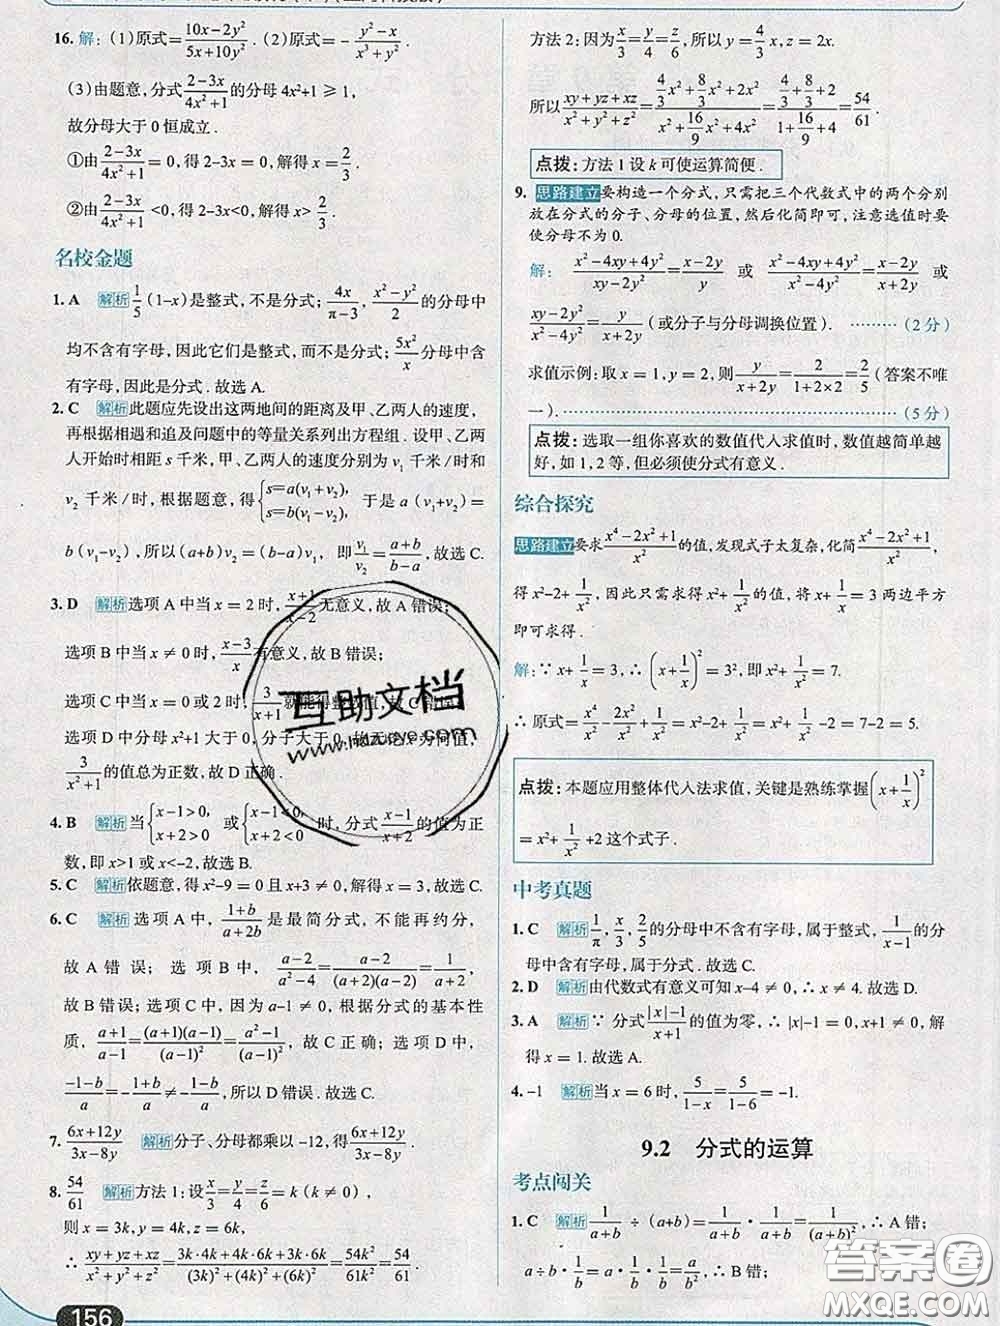 16. 解: (1)原式=(10x-2y²)/(5x+10y²). (2)原式=-(y²-x)/(x³+y²).
(3)由题意,分式(2-3x)/(4x²+1)的分母 4x²+1 ⩾ 1,
故分母大于 0 恒成立.
①由(2-3x)/(4x²+1)=0,得 2-3x=0,解得 x=2/3.
②由(2-3x)/(4x²+1)<0,得 2-3x<0,解得 x>2/3.
名校金题
1. A 解析 1/5(1-x)是整式,不是分式;4x/(π-3),(x²-y²)/2的分母中
均不含有字母,因此它们是整式,而不是分式;5x²/x分母中含
有字母,因此是分式.故选 A.
2. C 解析 此题应先设出这两地间的距离及甲、乙两人的速度,
再根据相遇和追及问题中的等量关系列出方程组.设甲、乙两
人开始时相距 s 千米,甲、乙两人的速度分别为 v₁ 千米/时和
v₂ 千米/时,根据题意,得{s=a(v₁+v₂), s=b(v₁-v₂), 于是 a(v₁+v₂)=
b(v₁-v₂),所以(a+b)v₂=(b-a)v₁, 即v₁/v₂=(a+b)/(b-a),故选 C.
3. D 解析 选项 A 中当 x = 2 时,(x+1)/(x-2)无意义,故 A 错误;
选项 B 中当 x ≠ 0 时,(x-3)/x有意义,故 B 错误;
选项 C 中当 x = 0 或 2 时,3/(x+1)就能得整数值,故 C 错误;
选项 D 中分母 x²+1 大于 0,分子大于 0,故无论 x 为何值,
3/(x²+1)的值总为正数,故 D 正确.
4. B 解析 当{x-1>0, x+2>0 或{x-1<0, x+2<0 时,分式(x-1)/(x+2)的值为正
数,即 x>1 或 x<-2,故选 B.
5. C 解析 依题意,得 x²-9 = 0 且 x+3 ≠ 0,解得 x = 3.故选 C.
6. C 解析 选项 A 中,(1+b)/(a+2b)是最简分式,不能再约分,
故 A 错误;选项 B 中,(a-2)/(a²-4)=(a-2)/((a+2)(a-2))=1/(a+2),
故 B 错误;选项 C 中,因为 a-1 ≠ 0,根据分式的基本性
质,(a+1)/(a-1)=((a+1)(a-1))/(a-1)²=(a²-1)/(a-1)²,故 C 正确;选项 D 中,
(-1-b)/a=-(1+b)/a≠-(1-b)/a,所以 D 错误.故选 C.
7. (6x+12y)/(3x-8y) 解析 分子、分母都乘以 -12,得(6x+12y)/(3x-8y).
8. 54/61 解析 方法 1:设x/3=y/4=z/6=k(k ≠ 0),
则 x = 3k,y = 4k,z = 6k,
∴ (xy+yz+xz)/(x²+y²+z²)=(3k·4k+4k·6k+3k·6k)/((3k)²+(4k)²+(6k)²)=54k²/61k²=54/61.
156
方法 2:因为x/3=y/4=z/6,所以 y=4/3x,z=2x.
所以(xy+yz+xz)/(x²+y²+z²)=(4/3x²+8/3x²+2x²)/(x²+16/9x²+4x²)=(4/3+8/3+2)/(1+16/9+4)=54/61.
点拨:方法 1 设 k 可使运算简便.
9. 思路建立 要构造一个分式,只需把三个代数式中的两个分别
放在分式的分子、分母的位置,然后化简即可,注意选值时要
使分母不为 0.
解: (x²-4xy+4y²)/(xy-2y²)=(x-2y)/y 或 (x²-4xy+4y²)/(x²-4y²)=(x-2y)/(x+2y) 或
(xy-2y²)/(x²-4y²)=y/(x+2y)(或分子与分母调换位置). ………(2 分)
求值示例:取 x = 1,y = 2,则y/(x+2y)=2/(1+2×2)=2/5(答案不唯
一).……………………………………(5 分)
点拨:选取一组你喜欢的数值代入求值时,数值越简单越
好,如 1,2 等,但必须使分式有意义.
综合探究
思路建立 要求(x⁴-2x²+1)/x²的值,发现式子太复杂,化简(x⁴-2x²+1)/x²,
得 x²-2+1/x²,因此只需求得 x²+1/x²的值,将 x+1/x=3 两边平方
即可求得.
解:∵ x+1/x=3,∴ (x+1/x)²=3²,即 x²+1/x²=7.
∴ 原式=x⁴/x²-2x²/x²+1/x²=x²-2+1/x²=x²+1/x²-2=7-2=5.
点拨:本题应用整体代入法求值,关键是熟练掌握(x+1/x)²
=x²+1/x²+2 这个式子.
中考真题
1. C 解析 1/π,x/3,2/5的分母中不含有字母,属于整式,1/(x-1)的分
母中含有字母,属于分式.故选 C.
2. D 解析 由代数式有意义可知 x-4 ≠ 0,∴ x ≠ 4.故选 D.
3. A 解析 ∵ 分式(|x|-1)/(x+1)的值为零,∴ |x|-1 = 0,x+1 ≠ 0,解
得 x = 1.故选 A.
4. -1 解析 当 x = 6 时,5/(1-x)=5/(1-6)=-1.
9.2 分式的运算
考点闯关
1. C 解析 1/(a+b)÷(a+b)=1/(a+b)·1/(a+b)=1/(a+b)²,∴ A 错;
a÷b·1/b=a·1/b·1/b=a/b²,∴ B 错;
互助文档
答案圈
MXQE.COM